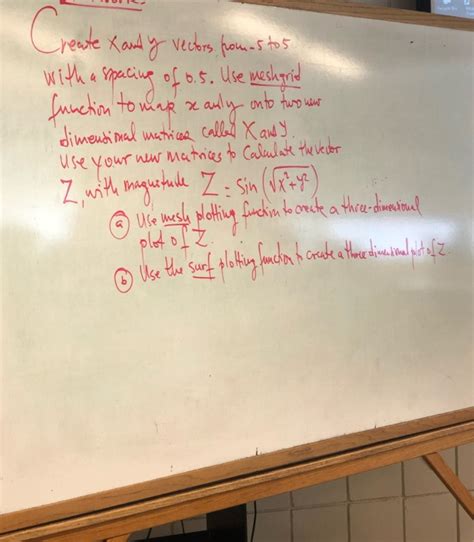 Create x and y vectors from -5 to 5
with a spacing of 0.5. Use meshgrid
function to map x and y onto two new
dimensional matrices called X and Y.
Use your new matrices to Calculate the vector
Z, with magnitude Z = sin (√x²+y²)
(a) Use mesh plotting function to create a three-dimensional
plot of Z.
(b) Use the surf plotting function to create a three dimensional plot of Z.